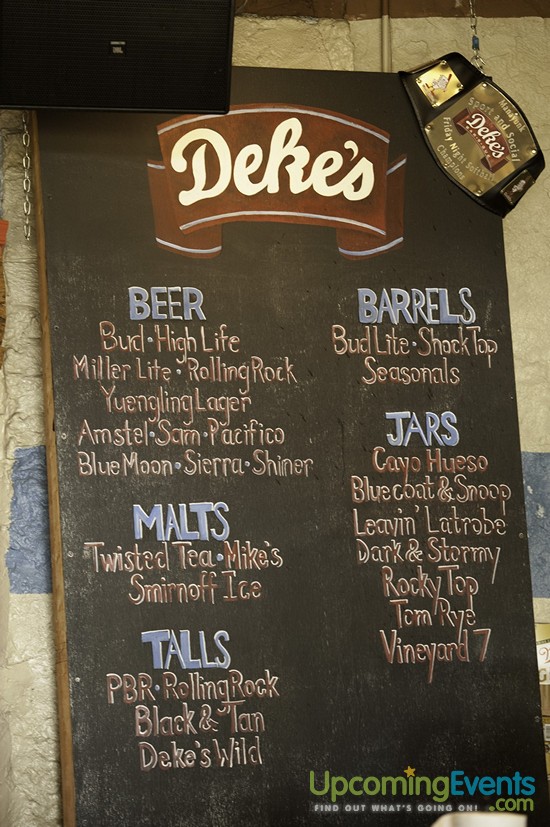 JBL
Deke's
Minihunk
Sport and Social
Deke's
Friday Night
Champions
BEER
Bud · High Life
Miller Lite · Rolling Rock
Yuengling Lager
Amstel · Sam · Pacifico
Blue Moon · Sierra · Shiner
MALTS
Twisted Tea · Mike's
Smirnoff Ice
TALLS
PBR · Rolling Rock
Black & Tan
Deke's Wild
BARRELS
Bud Lite · Shock Top
Seasonals
JARS
Cayo Hueso
Bluecoat & Snoop
Leavin' Latrobe
Dark & Stormy
Rocky Top
Tom Rye
Vineyard 7
UpcomingEvents
FIND OUT WHAT'S GOING ON! .com